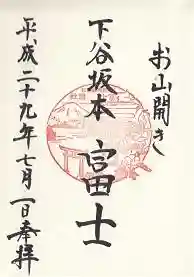 お山開き
下谷坂本富士
平成二十九年七月一日奉拝